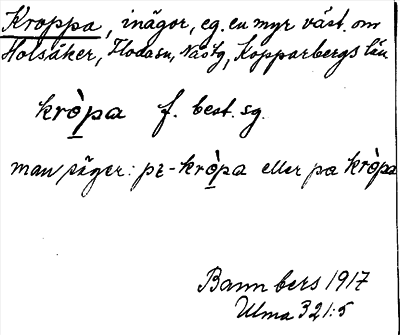 Kroppa, inägor, eg. en myr väst. om
Holsåker, Floda sn, Näsbg, Kopparbergs län
krò̱pa f. best. sg.
man säger: pɛ-krò̱pa eller pa kròpa
Bannbers 1917
Ulma 321:5